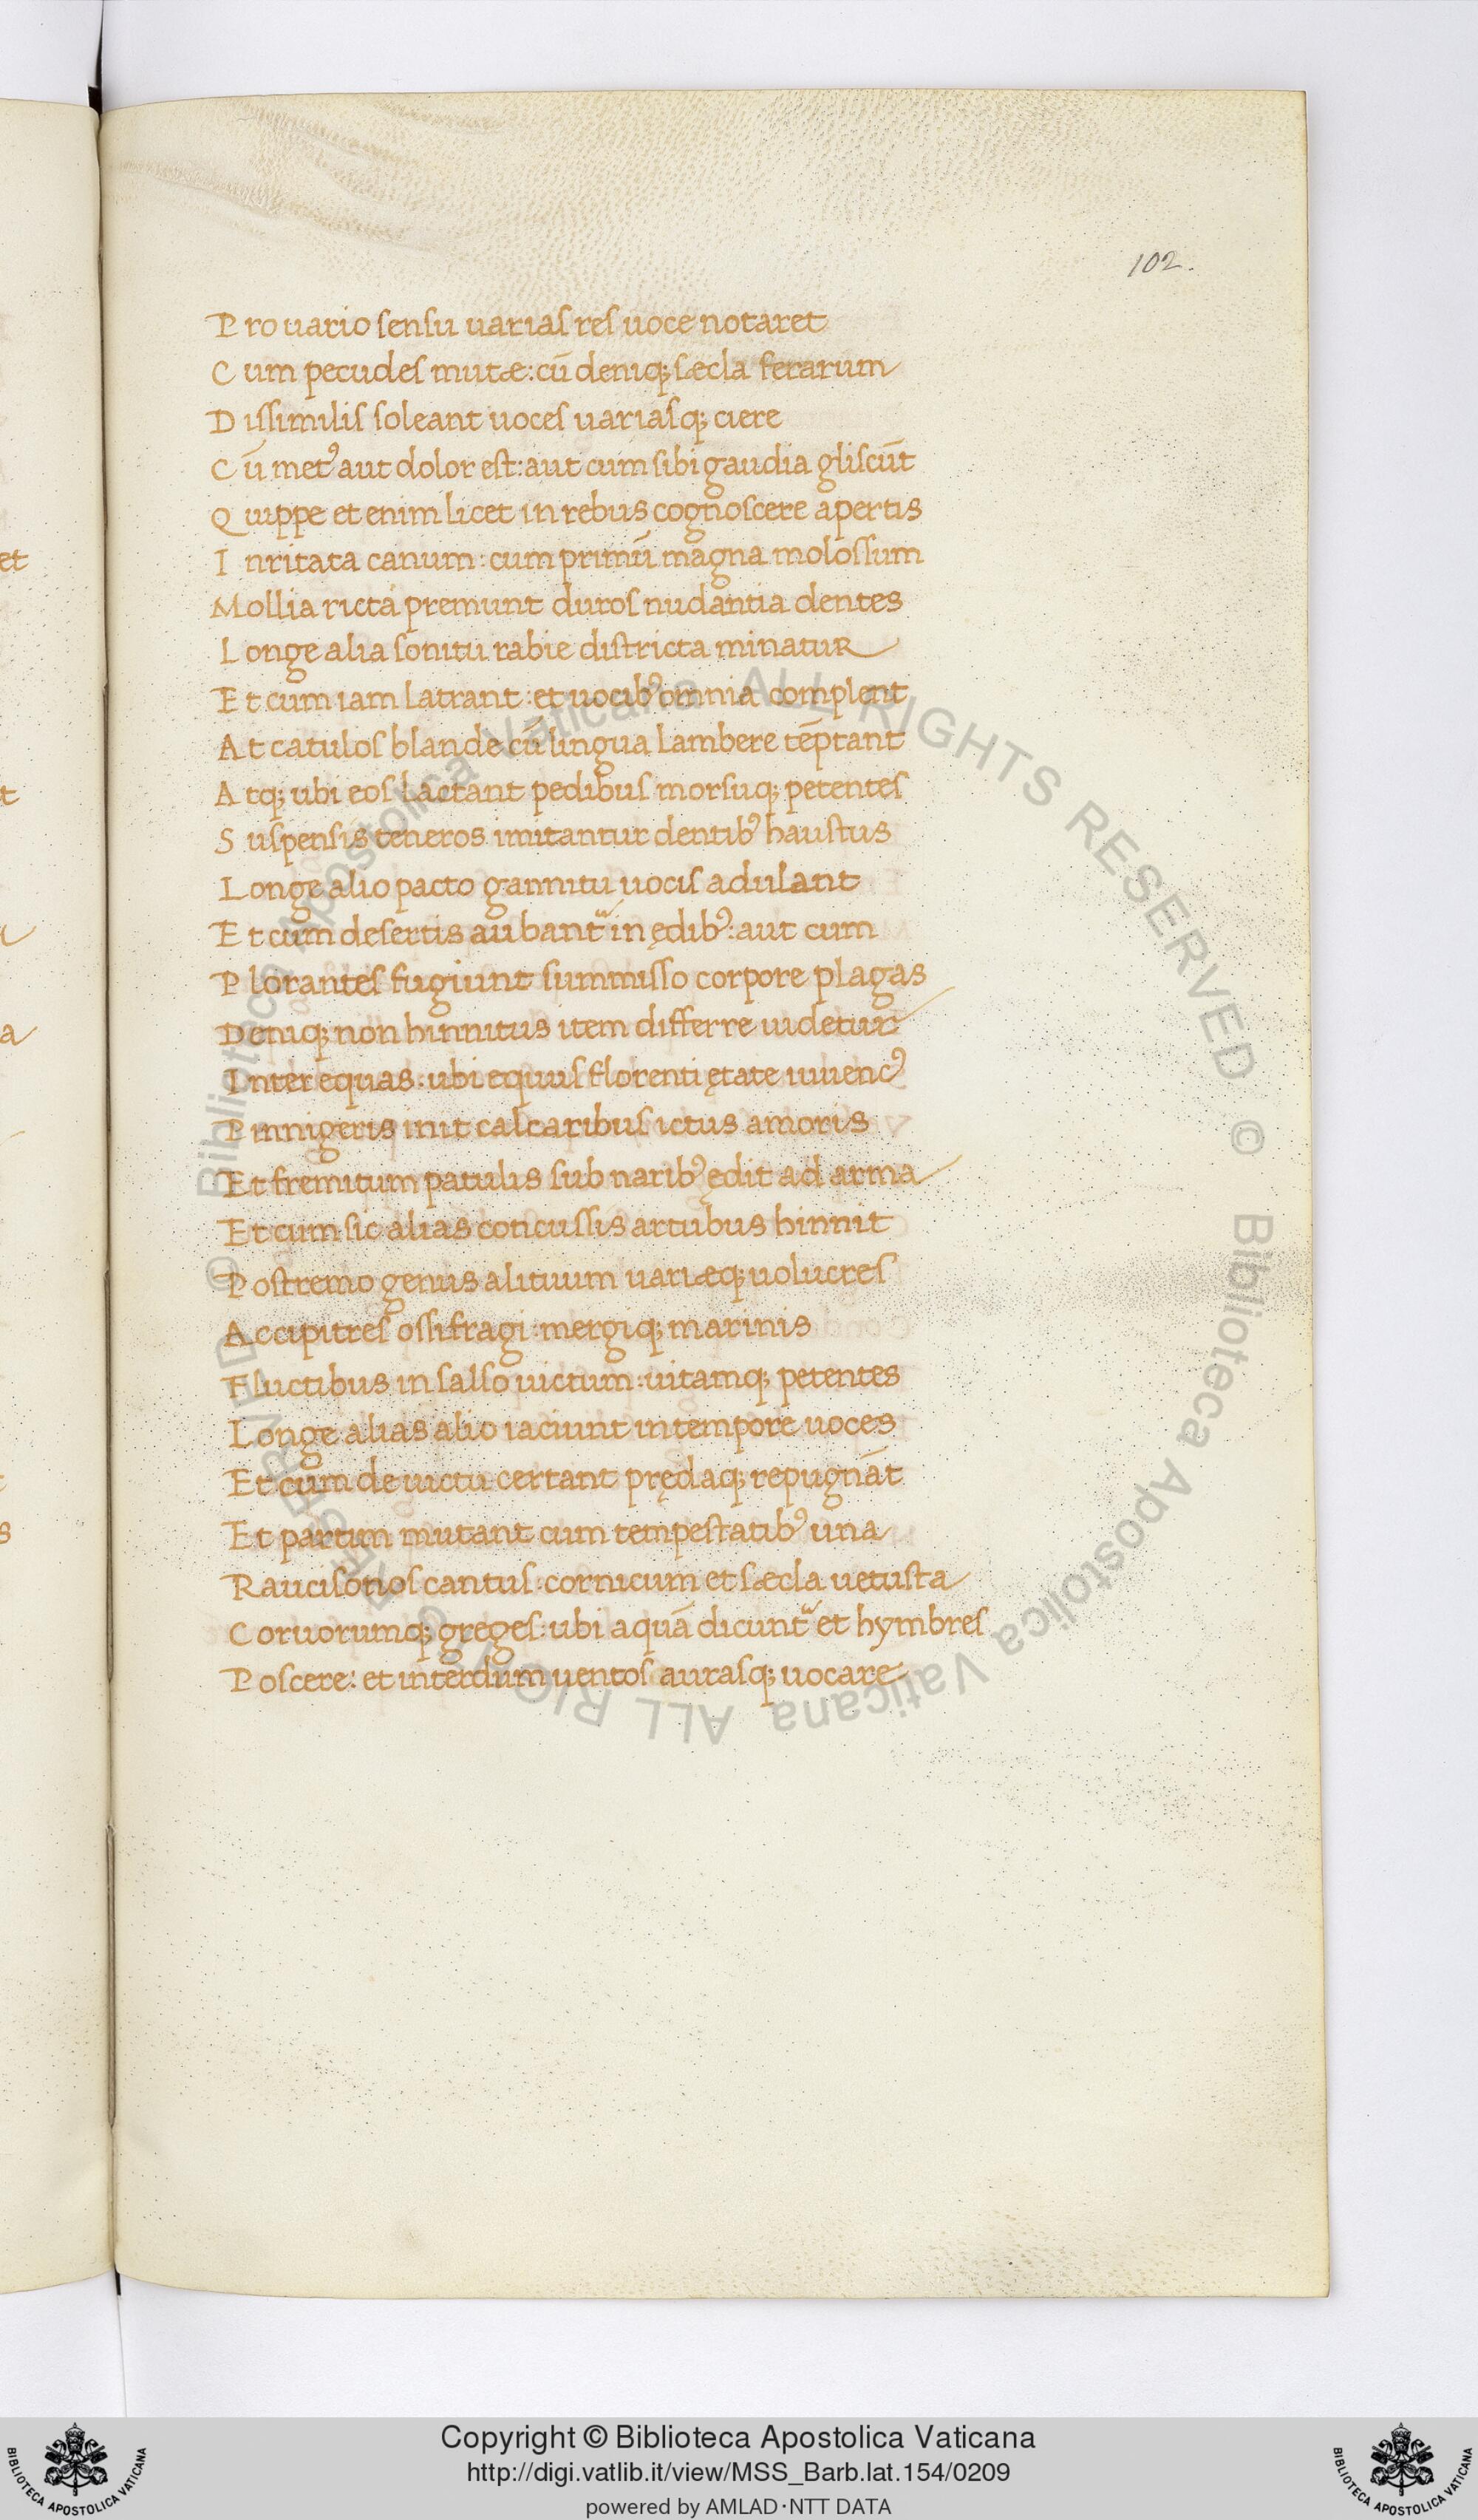 102.
Pro uario sensu uarias res uoce notaret
Cum pecudes mutæ: cū deniq; sæcla ferarum
Dissimilis soleant uoces uariasq; ciere
Cū metꝰ aut dolor est: aut cum sibi gaudia gliscūt
Quippe et enim licet in rebus cognoscere apertis
Inritata canum: cum primū magna molossum
Mollia ricta premunt duros nudantia dentes
Longe alia sonitu rabie districta minatur
Et cum iam latrant: et uocibꝰ omnia complent
At catulos blande cū lingua lambere tēptant
Atq; ubi eos lactant pedibus morsuq; petentes
Suspensis teneros imitantur dentibꝰ haustus
Longe alio pacto gannitu uocis adulant
Et cum desertis aubant᷑ in ędibꝰ: aut cum
Plorantes fugiunt summisso corpore plagas
Deniq; non hinnitus item differre uidetur
Inter equas: ubi equus florenti ętate iuuencꝰ
Pinnigeris init calcaribus ictus amoris
Et fremitum patulis sub naribꝰ ędit ad arma
Et cum sic alias concussis artubus hinnit
Postremo genus alituum uariæq; uolucres
Accipitres ossifragi: mergiq; marinis
Fluctibus in salso uictum: uitamq; petentes
Longe alias alio iaciunt in tempore uoces
Et cum de uictu certant prędaq; repugnāt
Et partim mutant cum tempestatibꝰ una
Raucisonos cantus: cornicum et sæcla uetusta
Coruorumq; greges: ubi aquā dicunt᷑ et hymbres
Poscere: et interdum uentos aurasq; uocare
et
t
a
s
© Biblioteca Apostolica Vaticana ALL RIGHTS RESERVED © Biblioteca Apostolica Vaticana ALL RIGHTS RESERVED
Copyright © Biblioteca Apostolica Vaticana
http://digi.vatlib.it/view/MSS_Barb.lat.154/0209
powered by AMLAD·NTT DATA
BIBLIOTECA APOSTOLICA VATICANA
BIBLIOTECA APOSTOLICA VATICANA